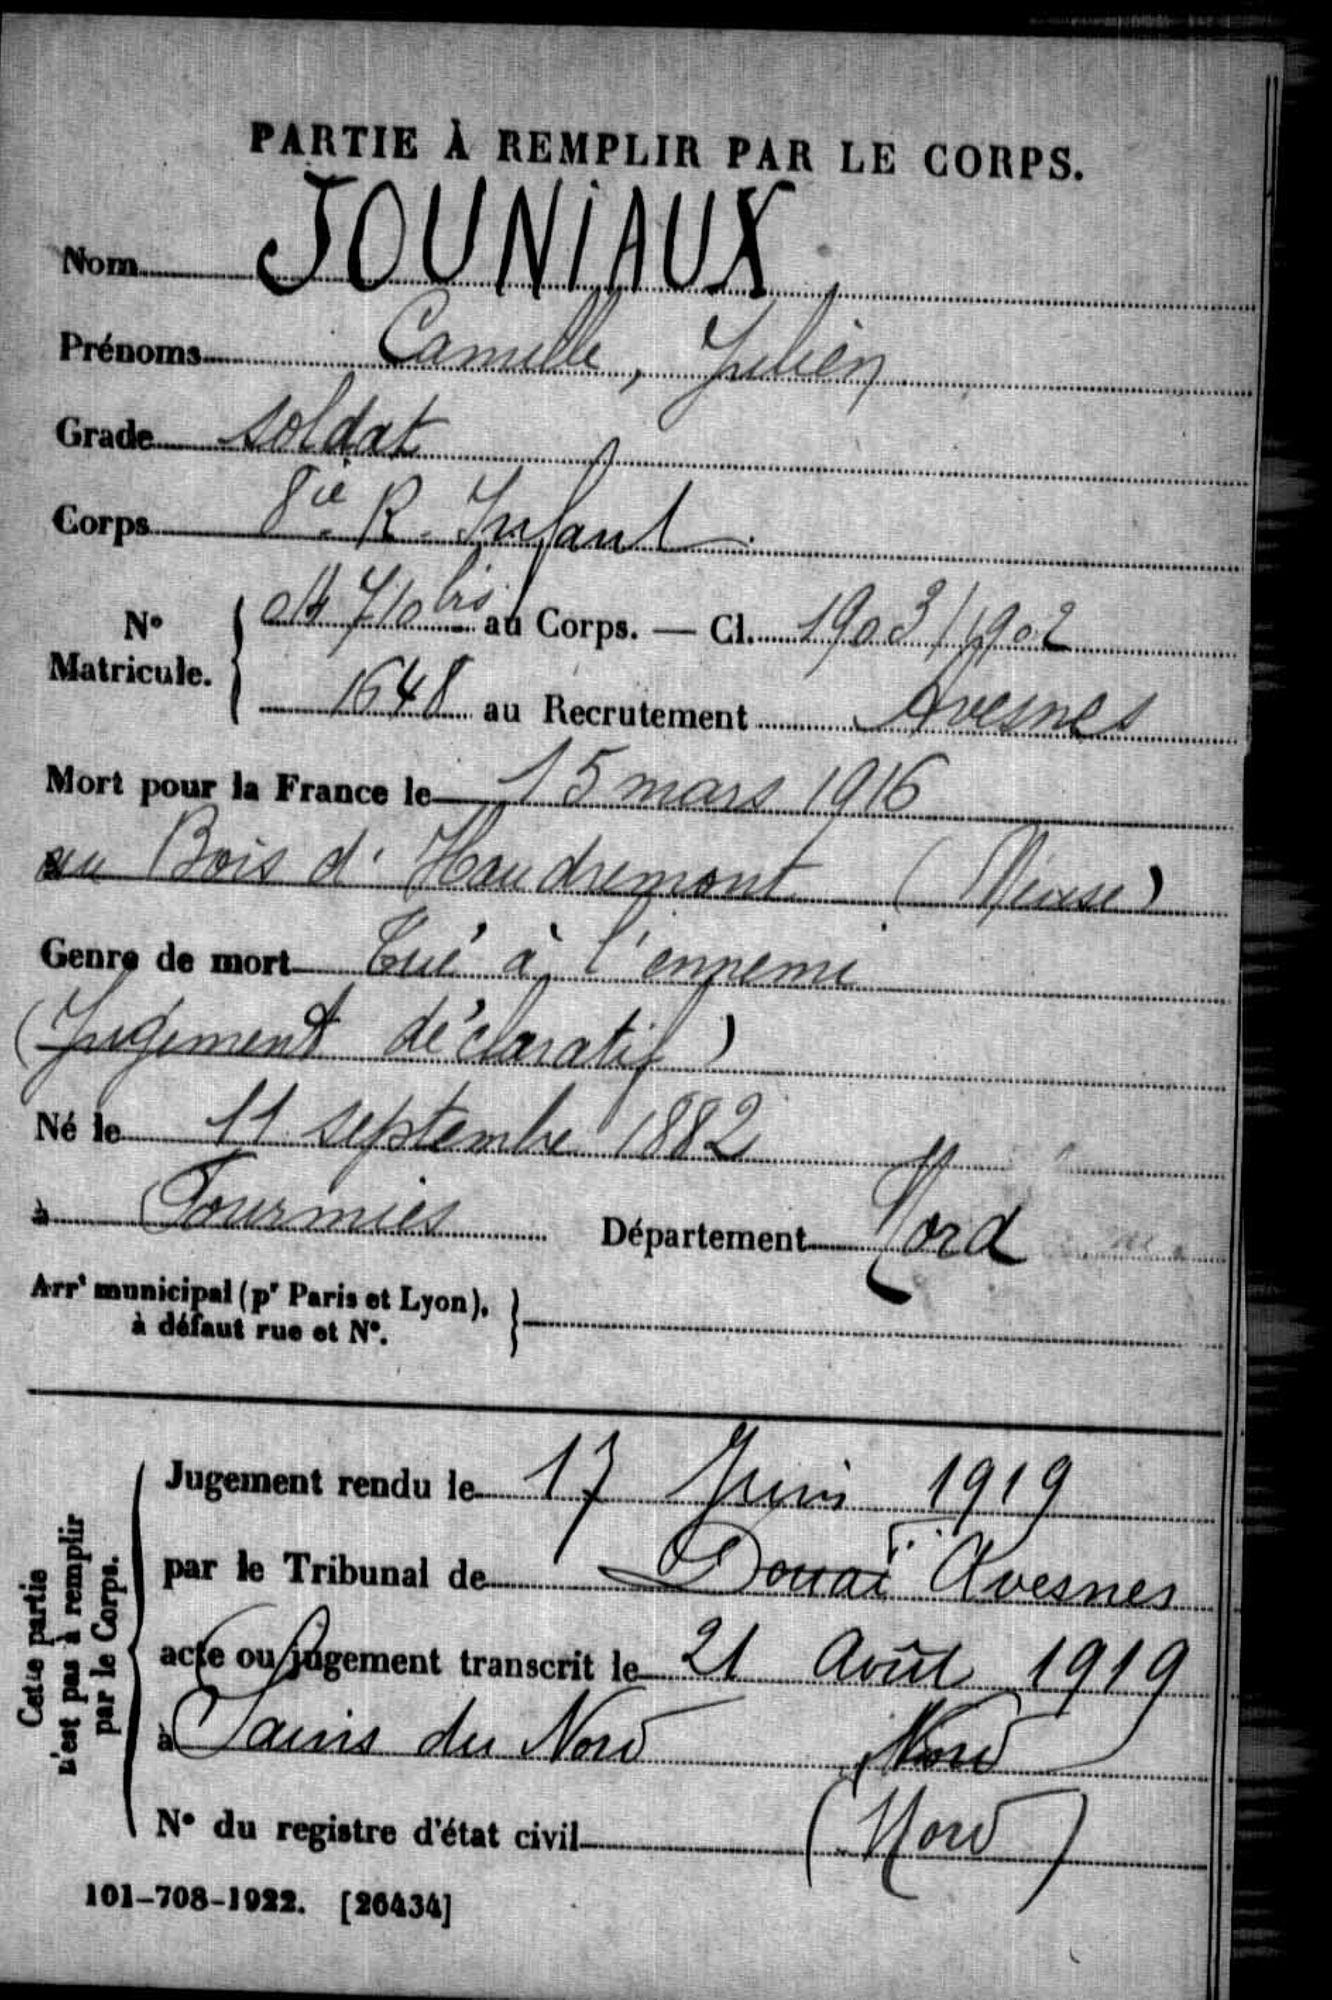 PARTIE À REMPLIR PAR LE CORPS.
Nom JOUNIAUX
Prénoms Camille, Julien
Grade soldat
Corps 8ie R. Infant
N° Matricule. 710 bis au Corps. — Cl. 1903/1902
1648 au Recrutement Avesnes
Mort pour la France le 15 mars 1916
au Bois d'Haudremont (Meuse)
Genre de mort Tué à l'ennemi
(Jugement déclaratif)
Né le 11 septembre 1882
à Fourmies Département Nord
Arrt municipal (pr Paris et Lyon),
à défaut rue et N°.
Cette partie
n'est pas à remplir
par le Corps.
Jugement rendu le 17 Juin 1919
par le Tribunal de Douai Avesnes
acte ou jugement transcrit le 21 Août 1919
à Sains du Nord Nord
N° du registre d'état civil (Nord)
101-708-1922. [26434]